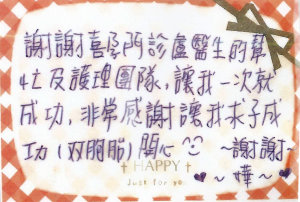 謝謝喜風門診盧醫生的幫
忙及護理團隊，讓我一次就
成功，非常感謝讓我求子成
功(双胞胎)開心
HAPPY
Just for you
~謝謝~
~嬅~